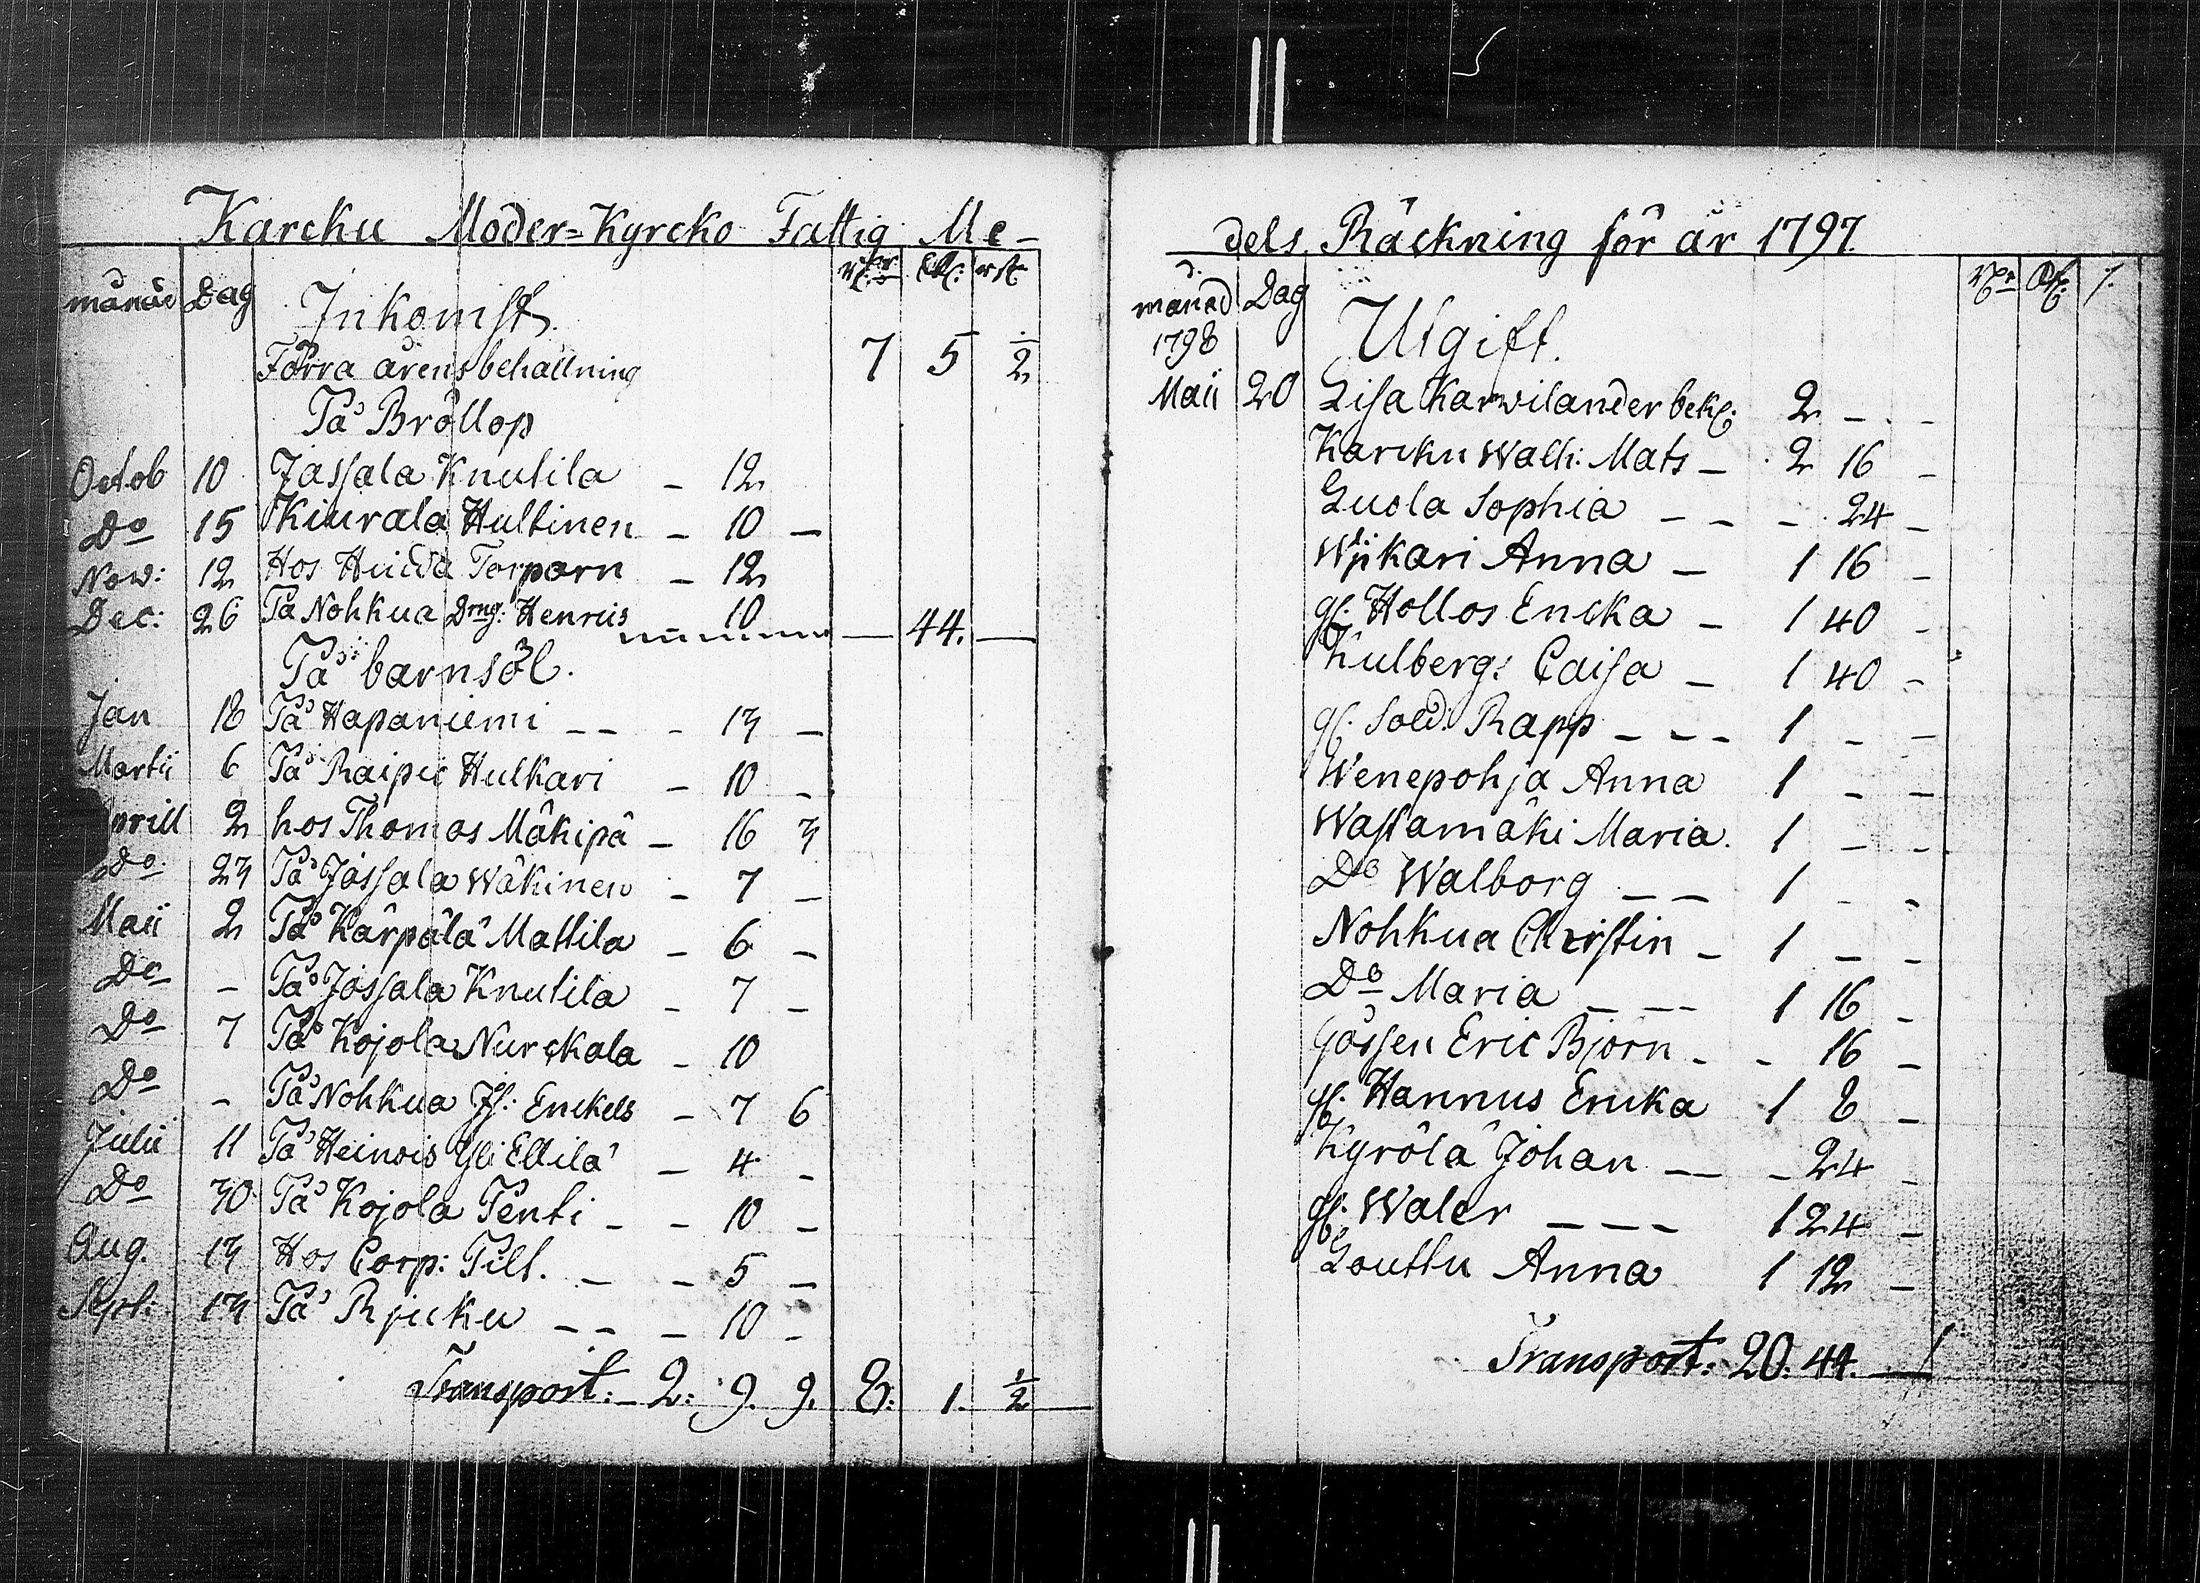 Karcku Moder-Kyrcko Fattig Me-
månad Dag Inkomst.
Förra årens behållning 7 5 1/2
På Bröllop
Octob 10 Jassala Knutila - 12
Do 15 Kiurala Hultinen - 10 -
Now: 12 Hos Huida Torparn - 12
Dec: 26 På Nohkua Drng: Henrics 10 - 44. -
På barnsöl.
Jan 18 På Hapaniemi - - - 13 -
Martii 6 På Raipio Hulkari - 10 -
Aprill 2 hos Thomas Mäkipä - 16 3
Do 23 På Jassala Wäkinen - 7 -
Maii 2 På Kärpälä Mattila - 6 -
Do - På Jassala Knutila - 7 -
Do 7 På Kojola Nurckala - 10
Do - På Nohkua Enckels - 7 6
Julii 11 På Heinois Yli Ellilä - 4 -
Do 30 På Kojola Penti - - 10 -
Aug. 13 Hos Corp: Pill. - - 5 -
Sept: 13 På Rjucku - - - 10 -
Transport: - 2: 9. 9. 8: 1. 1/2
dels Räckning för år 1797.
månad Dag
1798 Utgift.
Maii 20 Lisa Karwilander bek: 2 - -
Karcku Wall: Mats - 2 16 -
Luola Sophia - - - 24 -
Wijkari Anna - 1 16 -
gl. Hollos Ericka - 1 40 -
Kulberg: Caisa - 1 40 -
gl. Sold: Rapp - - - 1 - -
Wenepohja Anna 1 - -
Wastamäki Maria. 1 - -
Do Walborg - - 1 - -
Nohkua Christin - 1 - -
Do Maria - - - 1 16 -
Gossen Eric Björn - - 16 -
gl. Hannus Ericka 1 8 -
Kyrölä Johan - - 24 -
gl. Waler - - - 1 24 -
Louttu Anna 1 12 -
Transport: 20. 44. -